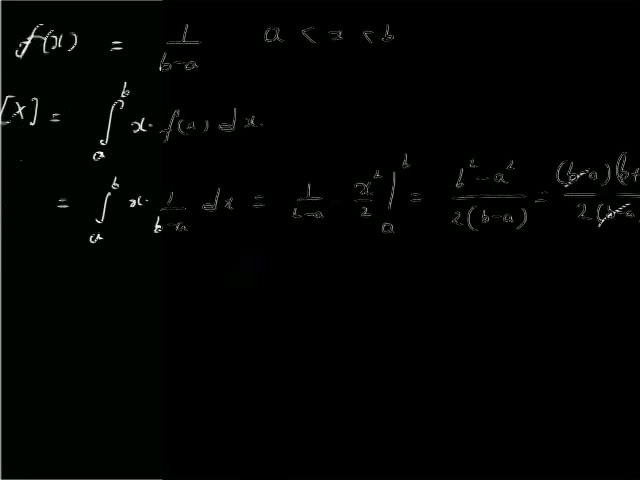 f(x) = 1/(b-a) a < x < b
[X] = ∫_a^b x · f(x) dx.
= ∫_a^b x · 1/(b-a) dx = 1/(b-a) x²/2 |_a^b = (b² - a²)/(2(b-a)) = (b-a)(b+/2(b-a